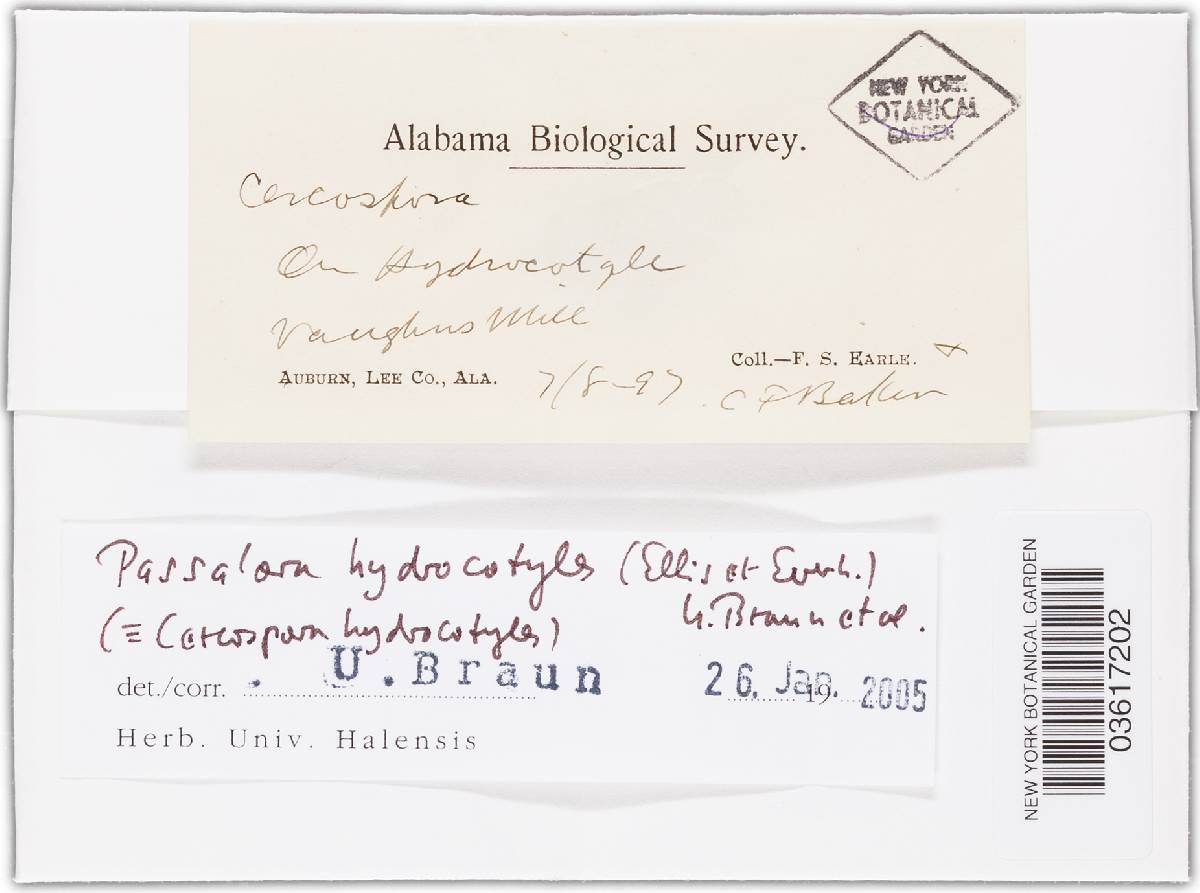 NEW YORK
BOTANICAL
GARDEN
Alabama Biological Survey.
Cercospora
On Hydrocotyle
Vaughns Mill
Coll.—F. S. Earle. +
Auburn, Lee Co., Ala. 7/8-97 C F Baker
Passalora hydrocotyles (Ellis et Everh.)
(≡ Cercospora hydrocotyles) U. Braun et al.
det./corr. U. Braun 26. Jan. 19 2005
Herb. Univ. Halensis
NEW YORK BOTANICAL GARDEN
03617202